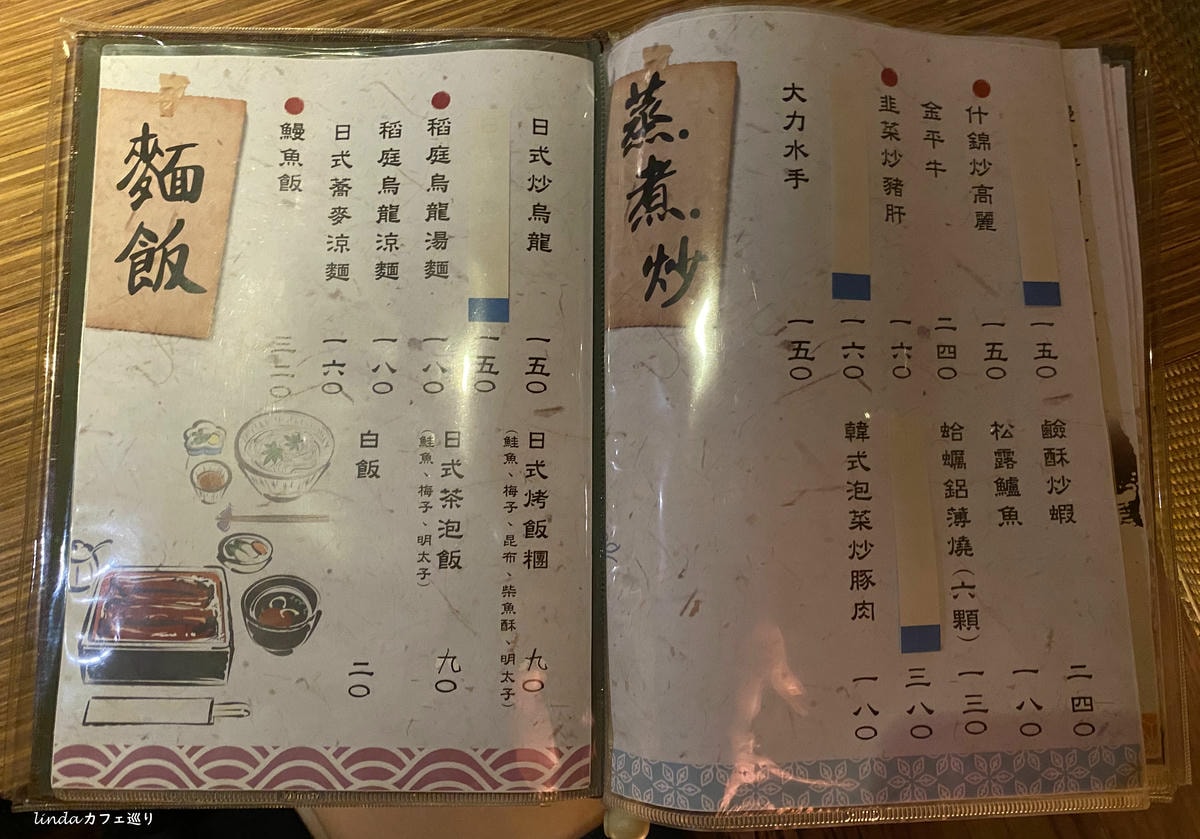 蒸.煮.炒
一五〇
什錦炒高麗 一五〇
金平牛 二四〇
韭菜炒豬肝 一六〇
一六〇
大力水手 一五〇
鹼酥炒蝦 二四〇
松露鱸魚 一八〇
蛤蠣鋁薄燒(六顆) 一三〇
三八〇
韓式泡菜炒豚肉 一八〇
麵飯
日式炒烏龍 一五〇
一五〇
稻庭烏龍湯麵 一八〇
稻庭烏龍涼麵 一八〇
日式蕎麥涼麵 一六〇
鰻魚飯
日式烤飯糰 九〇
(鮭魚、梅子、昆布、柴魚酥、明太子)
日式茶泡飯 九〇
(鮭魚、梅子、明太子)
白飯 二〇
lindaカフェ巡り